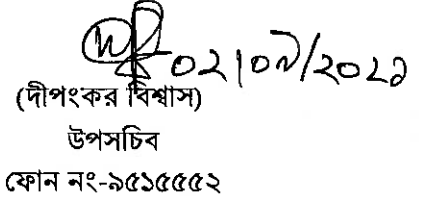 ০২/০৯/২০২১
(দীপংকর বিশ্বাস)
উপসচিব
ফোন নং-৯৫১৫৫৫২